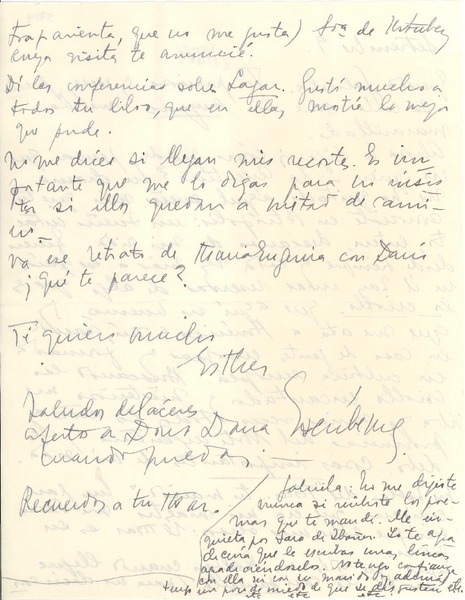 trapavienta, que no me gusta) Sra. de Istuba
cuya visita te anuncié.
Dí las conferencias sobre Lagar. Gustó mucho a
todos tu libro, que en ellas mostré lo mejor
que pude.
No me dices si llegan mis recortes. Es im-
portante que me lo digas para no insis-
tir si ellos quedan a mitad de cami-
no -
Va ese retrato de María Eugenia con Darío
¿Qué te parece?
Te quiero mucho
Esther
Saludos de Cáceres
afecto a Doris Dana
Escríbeme
cuando puedas. -
Recuerdos a tu mar.
Gabriela: no me dijiste
nunca si recibiste los poe-
mas que te mandé. Me in-
quieta por Sara de Ibáñez. Yo te agra-
decería que le escribas unas líneas
agradeciéndoselos. No tengo confianza
con ella ni con su marido y además
tengo un poco de miedo de que se disgusten